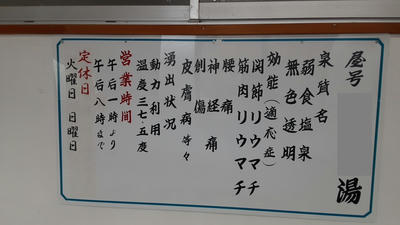 屋号 湯
泉質名
弱食塩泉
無色透明
効能（適応症）
関節リウマチ
筋肉リウマチ
腰痛
神経痛
創傷
皮膚病等々
湧出状況
動力利用
温度三七・五度
営業時間
午后一時より
午后八時まで
定休日
火曜日 日曜日